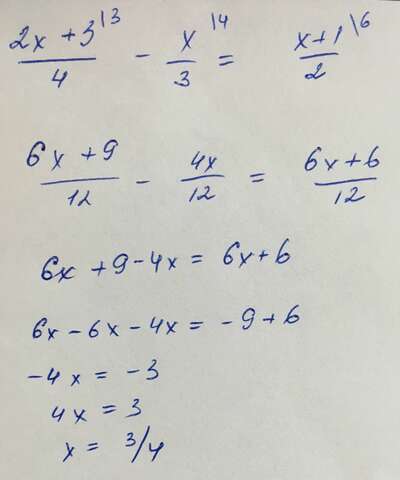 (2x + 3)/4 \3 - x/3 \4 = (x+1)/2 \6
(6x + 9)/12 - 4x/12 = (6x + 6)/12
6x + 9 - 4x = 6x + 6
6x - 6x - 4x = - 9 + 6
- 4x = - 3
4x = 3
x = 3/4